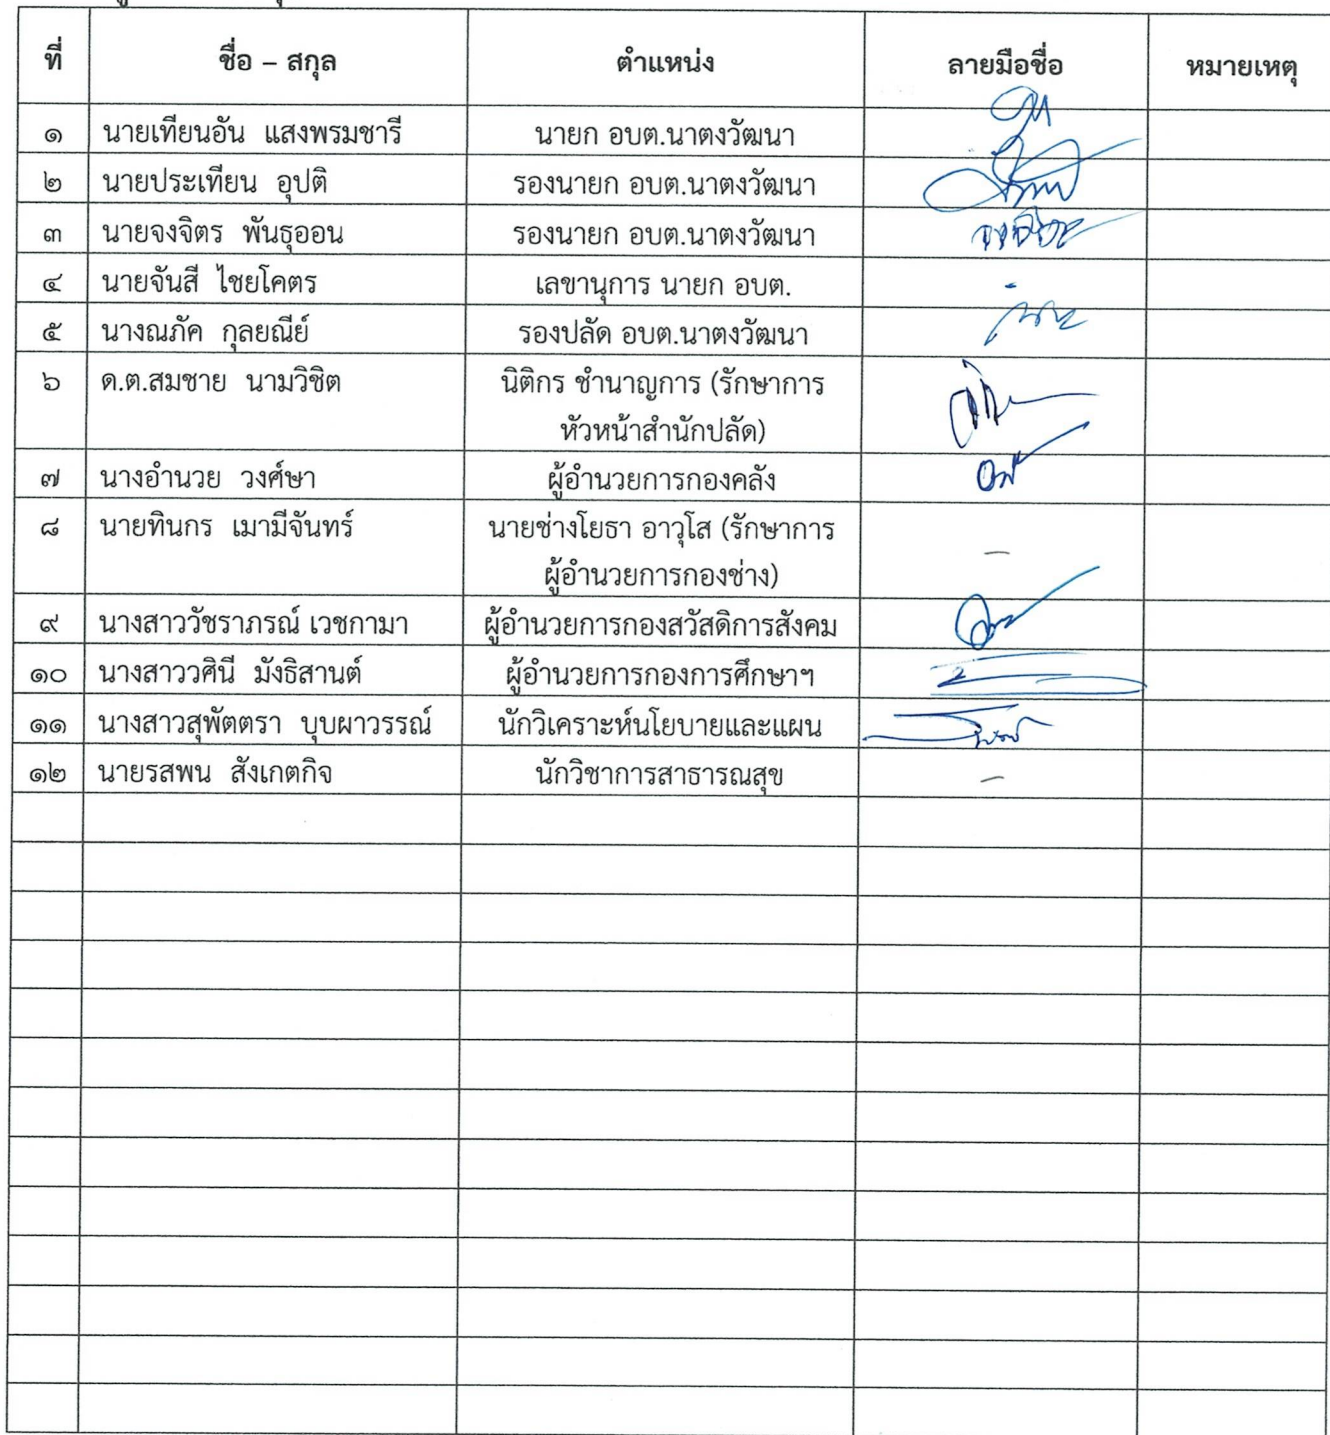 ที่ ชื่อ – สกุล ตำแหน่ง ลายมือชื่อ หมายเหตุ
๑ นายเทียนอัน แสงพรมชารี นายก อบต.นาตงวัฒนา
๒ นายประเทียน อุปติ รองนายก อบต.นาตงวัฒนา
๓ นายจงจิตร พันธุออน รองนายก อบต.นาตงวัฒนา
๔ นายจันสี ไชยโคตร เลขานุการ นายก อบต.
๕ นางณภัค กุลยณีย์ รองปลัด อบต.นาตงวัฒนา
๖ ด.ต.สมชาย นามวิชิต นิติกร ชำนาญการ (รักษาการ
หัวหน้าสำนักปลัด)
๗ นางอำนวย วงศ์ษา ผู้อำนวยการกองคลัง
๘ นายทินกร เมามีจันทร์ นายช่างโยธา อาวุโส (รักษาการ
ผู้อำนวยการกองช่าง) –
๙ นางสาววัชราภรณ์ เวชกามา ผู้อำนวยการกองสวัสดิการสังคม
๑๐ นางสาววศินี มังธิสานต์ ผู้อำนวยการกองการศึกษาฯ
๑๑ นางสาวสุพัตตรา บุบผาวรรณ์ นักวิเคราะห์นโยบายและแผน
๑๒ นายรสพน สังเกตกิจ นักวิชาการสาธารณสุข –